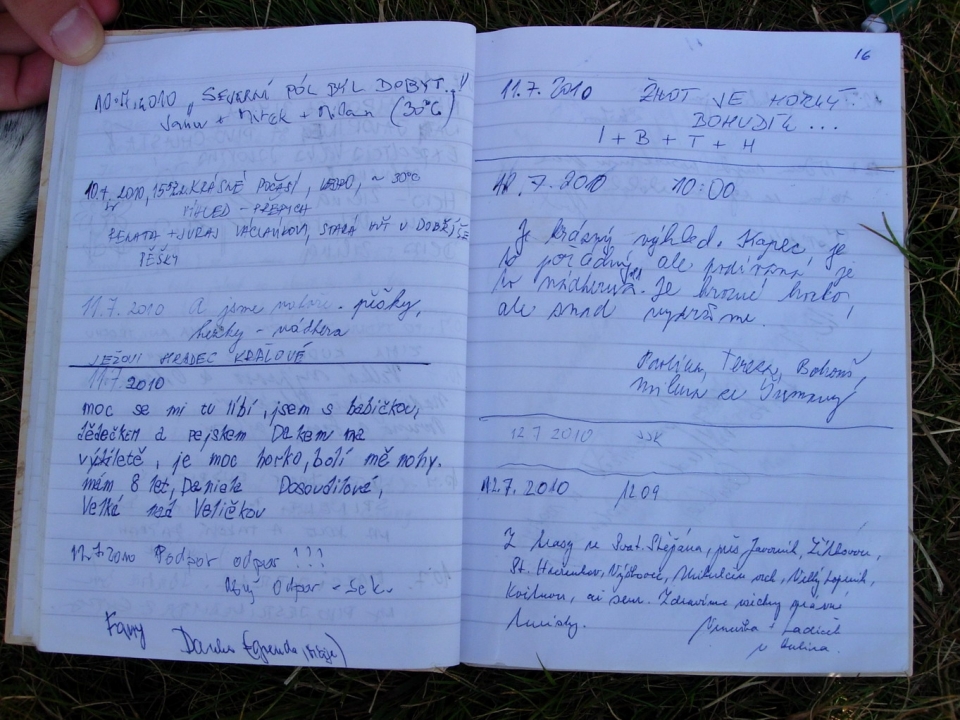 10.7.2010 „SEVERNÍ PÓL BYL DOBYT..."
+ Mirek + Milan (30°C)
10.7.2010, KRÁSNÉ POČASÍ, ~ 30°C
VÝHLED -
RENATA + JURAJ VÁCLAVKOVI, STARÁ HUŤ U DOBŘÍŠE
PĚŠKY
11.7.2010 A jsme nahoře - pěšky,
hezky - nádhera
JEŽOVI HRADEC KRÁLOVÉ
11.7.2010
moc se mi tu líbí, jsem s babičkou,
dědečkem a pejskem Dakem na
výpiletě, je moc horko, bolí mě nohy.
mám 8 let, Daniela Dosoudilová,
Velká nad Veličkou
11.7.2010 Podpor odpor !!!
odpor - Sek.
Fany
16
11.7.2010 ŽIVOT JE HOŘKÝ..
BOHUDÍK...
I + B + T + H
12.7.2010 10:00
Je krásný výhled. Kopec je
to pořádný, ale podívaná je
to nádherná. Je hrozné horko,
ale snad vydržíme.
Pavlína, Terezka, Bohouš,
Milena ze Šumavy
12.7 2010 JSK
12.7.2010 1209
Z trasy ze Svat. Štěpána, přes Javorník, Zítkovou,
St. Hrozenkov, Výškovec, Mikulčin vrch, Velký Lopeník,
Květnou, až sem. Zdravíme všechny pravé
turisty.
+ Ladíček
z Dubňan.